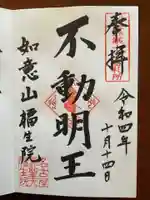 奉拝
令和四年
十月十四日
不動明王
如意山福生院